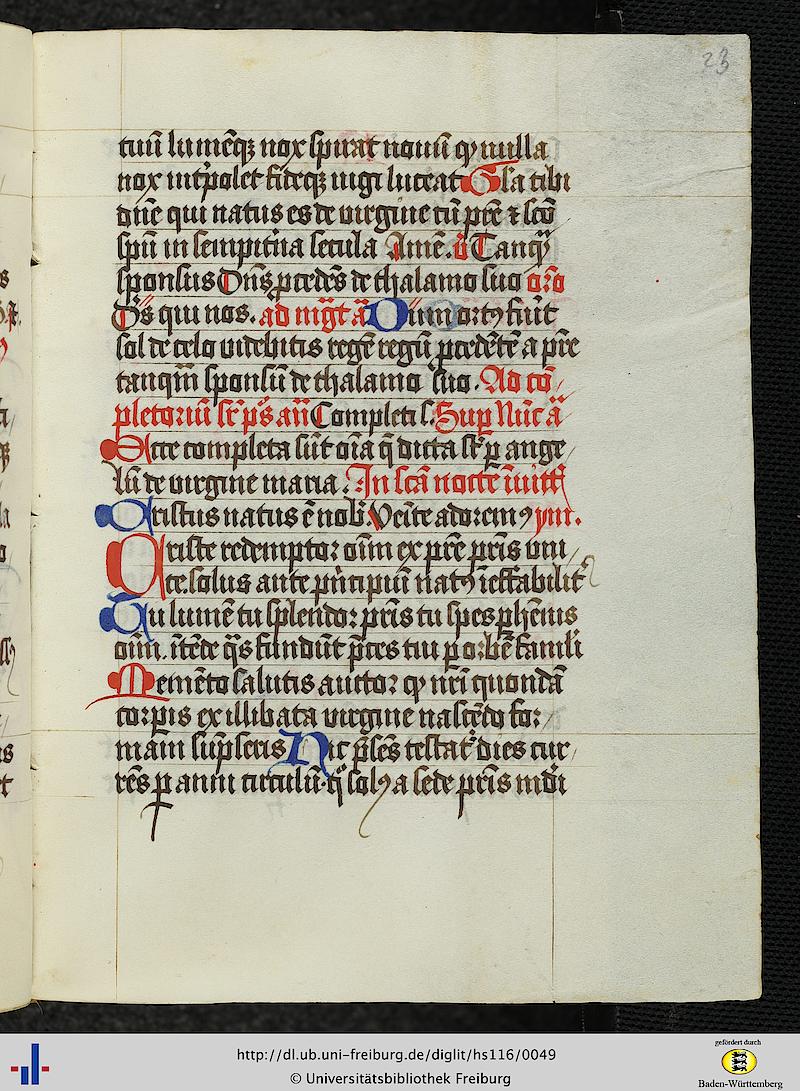 23
tuū lumēqꝫ nox spirat nouū qͥ nulla
nox int̓polet fideqꝫ iugi luceat Gl̓a tibi
dn̄e qui natus es de uirgine cū pr̄e ⁊ sc̄o
spū in sempit̓na secula Amē. v̄ Tanqͣ
sponsus Dn̄s ꝓcedēs de thalamo suo or̄o
Ds̄ qui nos. ad mg̓t ā Dum ortꝰ fuīt
sol de celo uidebitis regē regū ꝓcedētē a pr̄e
tanqm̄ sponsū de thalamo suo. Ad cō
pletoriū sr̄ ps̄ an̄ Completi s̄. Sup Nūc ā
Ecce completa sūt oīa q̄ dicta sr̄ ꝑ ange
lū de uirgine maria. In scā nocte īuitͭ
Cristus natus ē nob̄ Veīte adoremꝰ ym̄.
Criste redemptor oīm ex pr̄e pr̄is uni
ce. solus ante pͥncipiū natꝰ īeffabilit̓
Tu lumē tu splendor pr̄is tu spes ꝑhēnis
oīm. ītēde q̄s fundūt p̄ces tui ꝑ orbē famli
Memēto salutis auctor qͥ nr̄i quondā
corpis ex illibata uirgine nascēdo for
mam sūpseris Hic p̄sēs testat̓ dies cur
rēs ꝑ anni circulū. qͥ solꝰ a sede pr̄is mūdi
http://dl.ub.uni-freiburg.de/diglit/hs116/0049
© Universitätsbibliothek Freiburg
gefördert durch
Baden-Württemberg